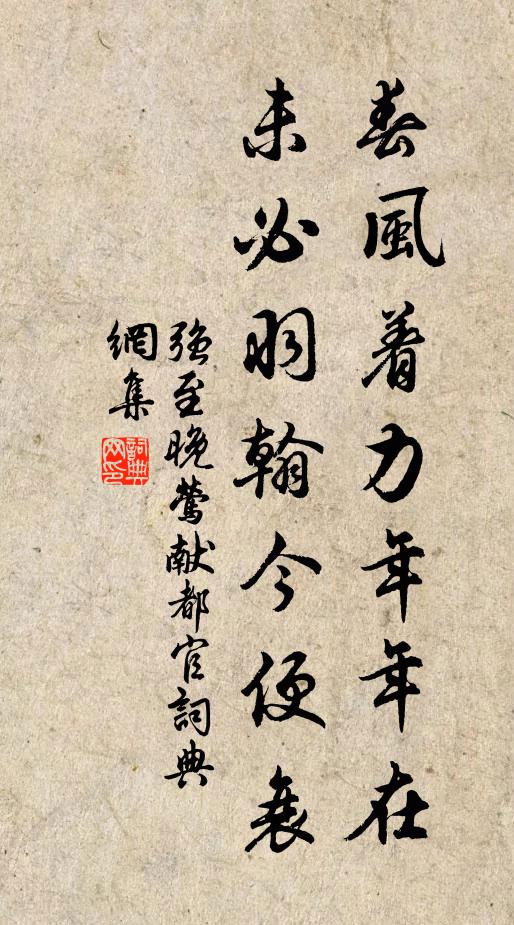 春風着力年年在
未必羽翰今便衰
強至晚鶯献都官詞典
網集
詞典
网印